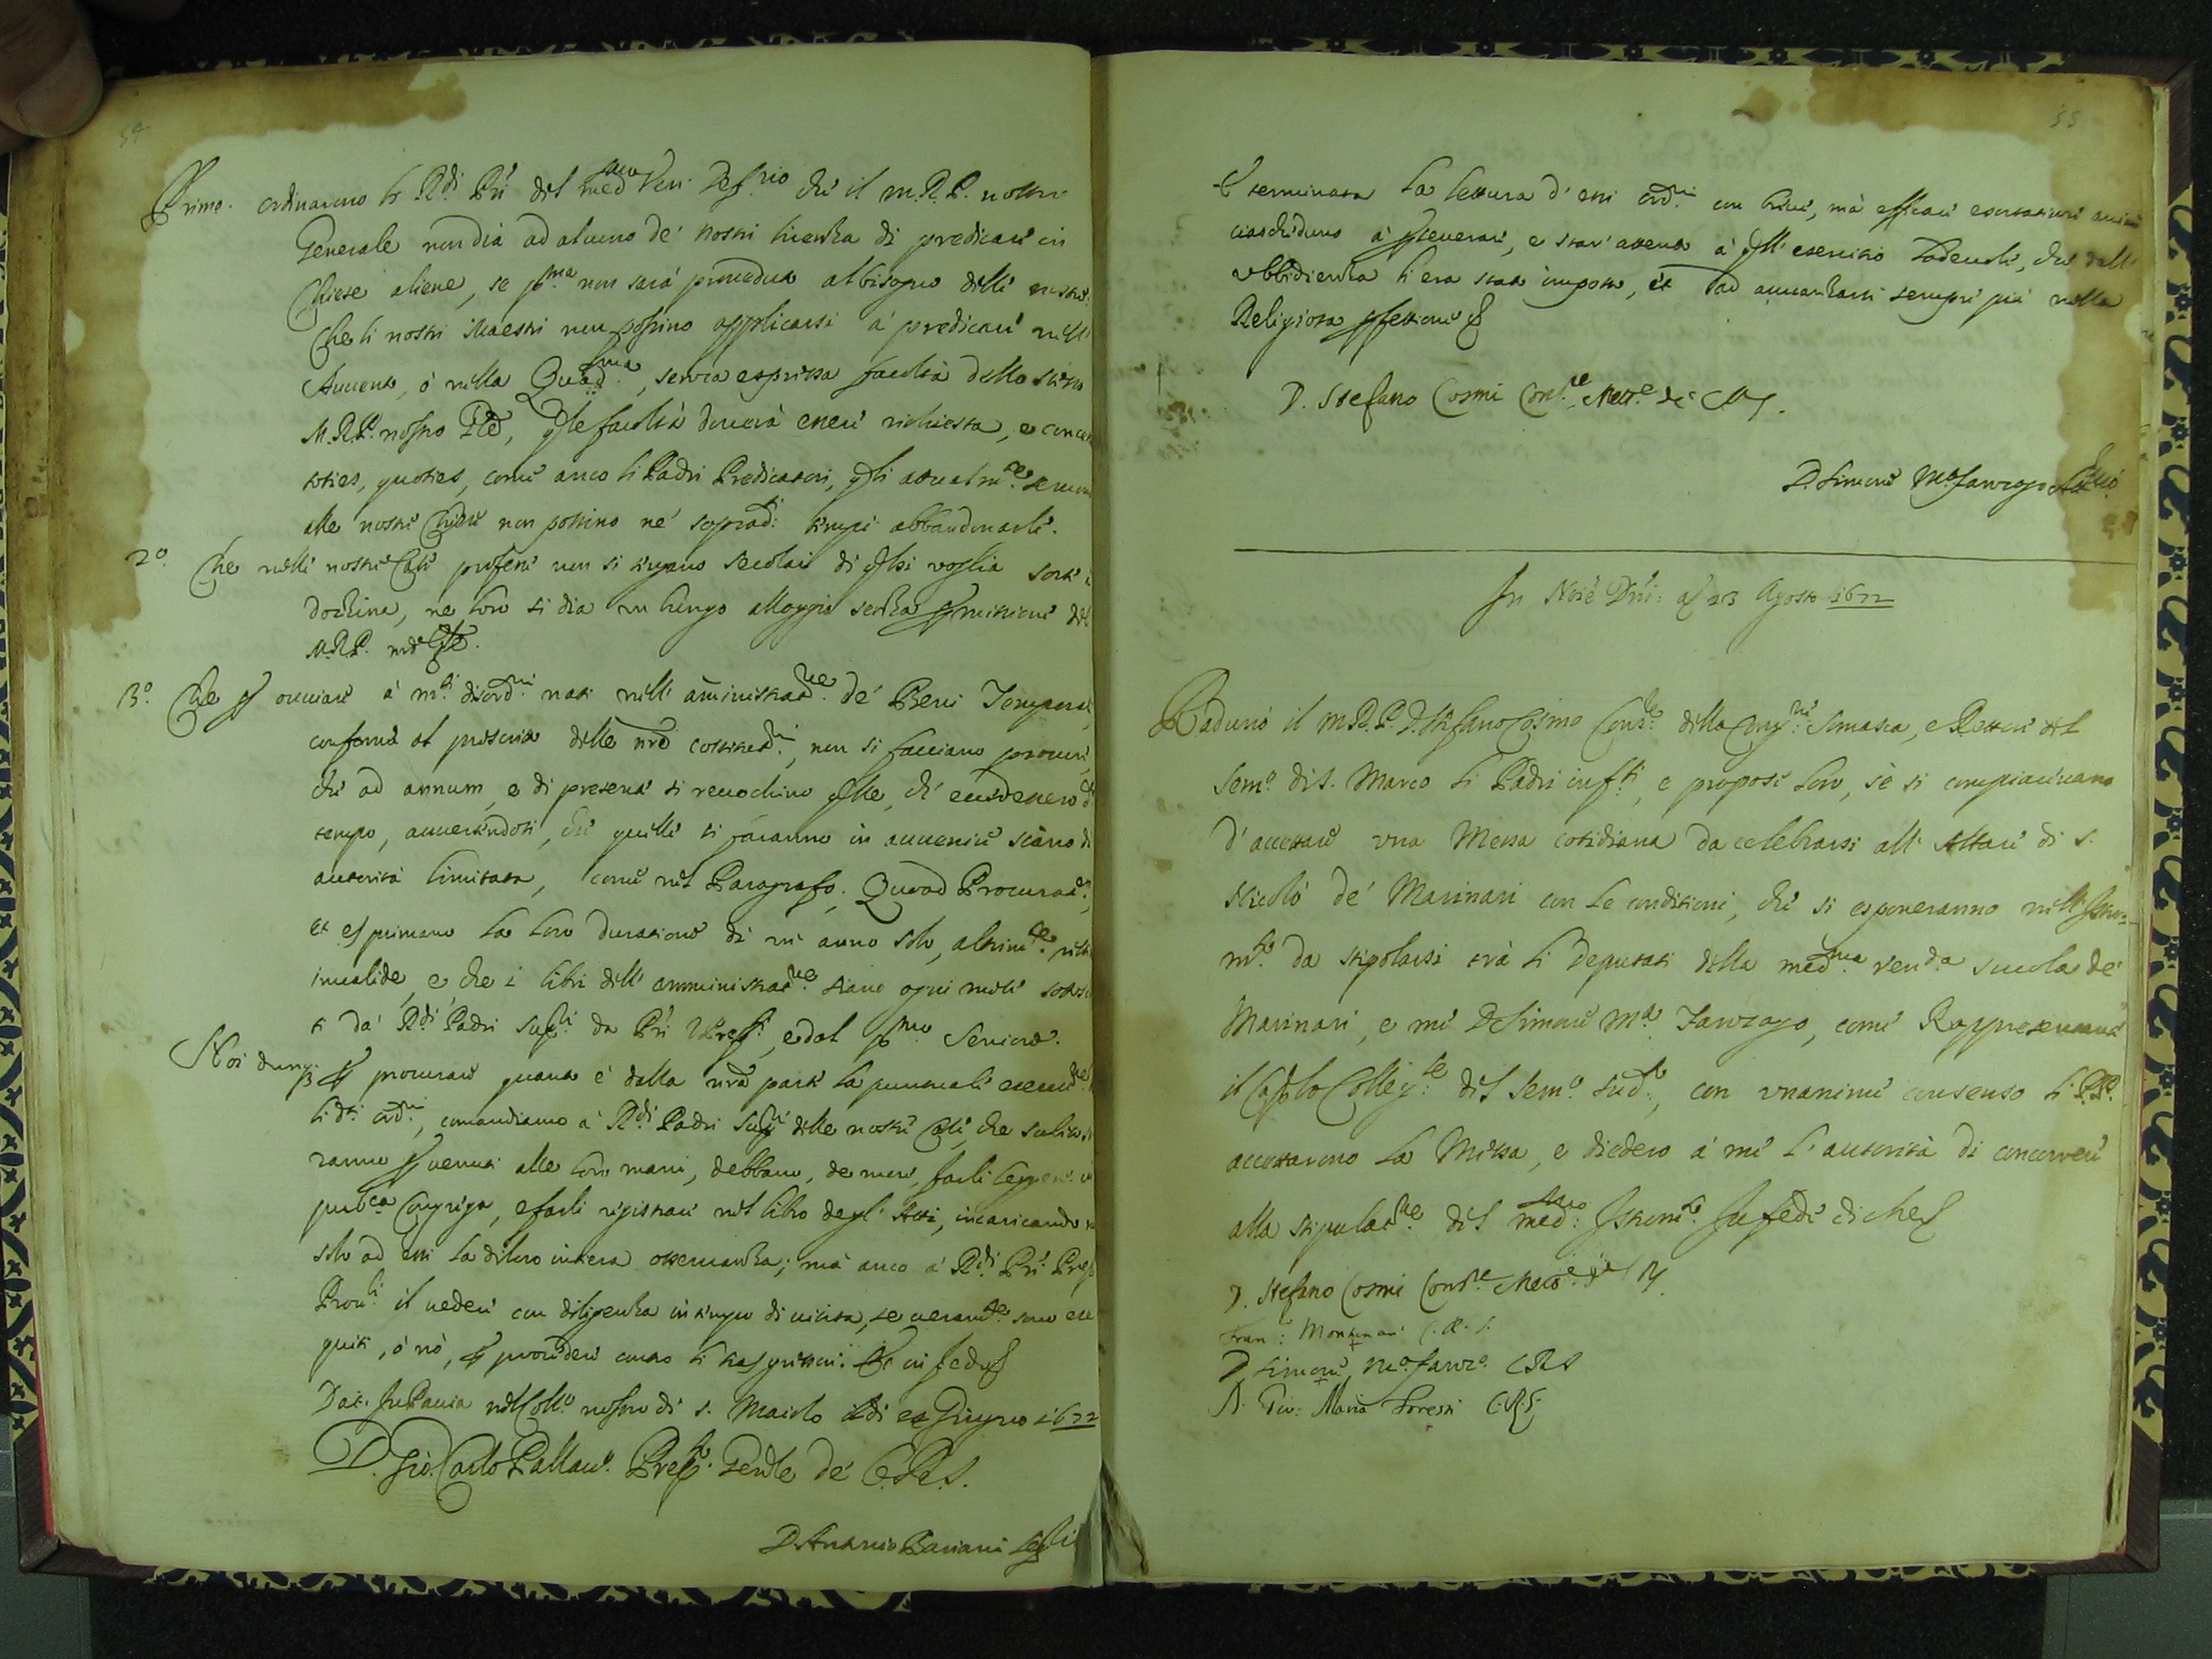 54
Primo. ordinarono li R.di P.ri del med.mo Ven. Def.rio che il M.R.P. nostro
Generale non dia ad alcuno de' nostri licenza di predicare in
Chiese aliene, se p.ma non sarà proveduto al bisogno delle nostre.
Che li nostri Maestri non possino applicarsi a' predicare nell'
Avvento, ò nella Quad.ma, senza espressa facoltà dello stesso
M.R.P. nostro Gle, qle facoltà doverà essere richiesta, e concessa
toties, quoties, come anco li Padri Predicatori, qli attualm.te servono
alle nostre Chiese non possino ne' soprad.ti tempi abbandonarle.
2.o Che nelle nostre Case professe non si tengano secolari di qlsi voglia sorte à
dozhina, ne loro si dia un lungo alloggio senza pmissione del
M.R.P. nro Gle.
3.o Che p ovviare à m.ti disord.ni nati nell' aministrat.ne de' Beni Temporali,
conforme al prescritto delle nre costitut.ni, non si facciano procure,
che ad annum, e di presente si revochino qlle, ch' eccedessero d.o
tempo, avvertendosi, che quelle si faranno in avvenire siano di
autorità limitata, come nel Paragrafo. Quoad Procurat.s,
et esprimano la loro duratione di un' anno solo, altrim.te restino
invalide, e che i libri dell' amministrat.ne siano ogni mese sottoscri
ti da' R.di Padri Sup.ri da P.ri VPrep.ti, e dal p.mo Seniore.
Noi dunq; p procurare quanto è dalla nra parte la puntuale esecut.ne
li d.ti ord.ni, comandiamo a' R.di Padri Sup.ri delle nostre Case, che subito sa
ranno pvenuti alle loro mani, debbano, de more, farli leggere in
pub.ca Congrega, e farli registrare nel libro degl' Atti, incaricando non
solo ad essi la di loro intera osservanza; mà anco a' R.di P.ri Prep.ti
Prov.li il vedere con diligenza in tempo di visita, se veram.te sono ese
guiti, ò nò, p provedere contro li trasgressori. In fede
Dat. In Pavia nel Coll.o nostro di S. Maiolo Giugno 1672
D. Gio: Carlo Pallav.o Prep.to Gnle de' C.R.S.
D. Antonio Bariani
55
E terminata la lettura d' essi ord.ni con brevi, mà efficaci esortationi animò
ciascheduno à pseverare, e star' attento à qll' esercitio lodevole, che dall'
ubbidienza li era stato imposto, et ad avvanzarsi sempre più nella
Religiosa pfettione
D. Stefano Cosmi Cons.re Rett.re
D. Simone M.a Sanzogo Att.rio
In Noie Dni: a' 23 Agosto 1672
Radunò il M.R.P. D. Stefano Cosmo Cons.re della Cong.ne Somasca, e Rettore del
Sem.o di S. Marco li Padri infti, e propose loro, se si compiacevano
d' accettare una Messa cotidiana da celebrarsi all' Altare di S.
Nicolò de' Marinari con le conditioni, che si esponeranno nell' Istru=
m.to da stipolarsi trà li Deputati della med.ma ven.da scuola de'
Marinari, e me D Simone M.a Sanzogo, come Rappresentante
il Caplo Colleg.le del Sem.o sud.o, con unanime consenso li P.P.
accettarono la Messa, e diedero à me l' autorità di concorrere
alla stipulat.ne del med.mo Istrom.to In fede di che
D. Stefano Cosmi Cons.re
Fran: Montanari C.R.S.
D Simone M.a Sanzo. CRS
D. Gio: Maria Foresti C.R.S.